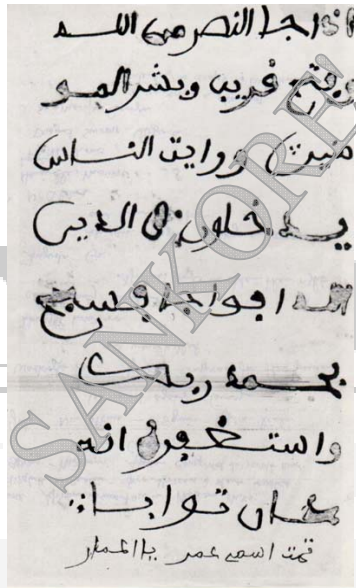 اذا جا النصر من الله
وفتح قريب وبشر المو
منين ورايت الناس
يدخلون في الدين
الله افواجا فسبح
بحمد ربك
واستغفره انه
كان توابا
تمت اسمي عمر
SANKORE'